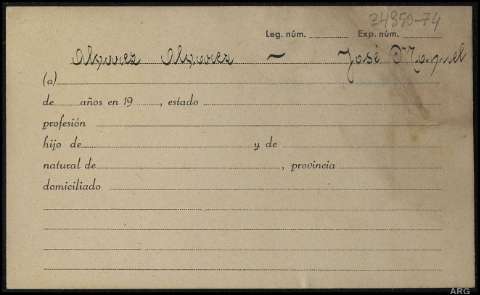 34950-74
Leg. núm. Exp. núm.
Alvarez Alvarez — José Manuel
(a)
de años en 19 , estado
profesión
hijo de y de
natural de , provincia
domiciliado
ARG